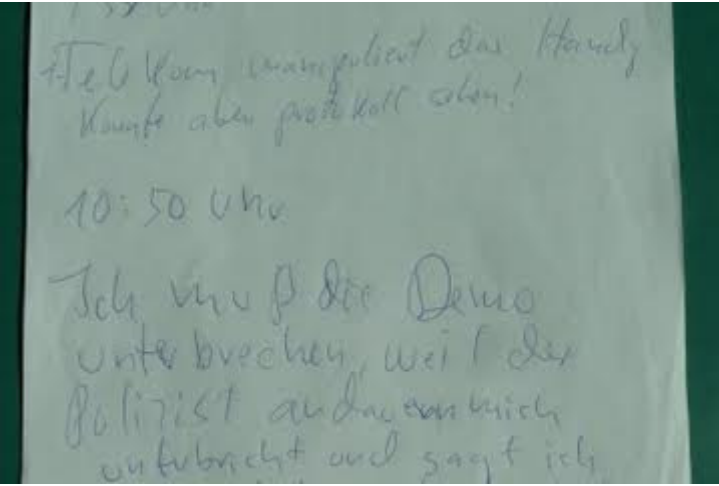 Telekom manipuliert das Handy
Konnte aber protokoll sehen!
10:50 Uhr
Ich muß die Demo
unterbrechen, weil der
Polizist andauernd mich
unterbricht und sagt ich